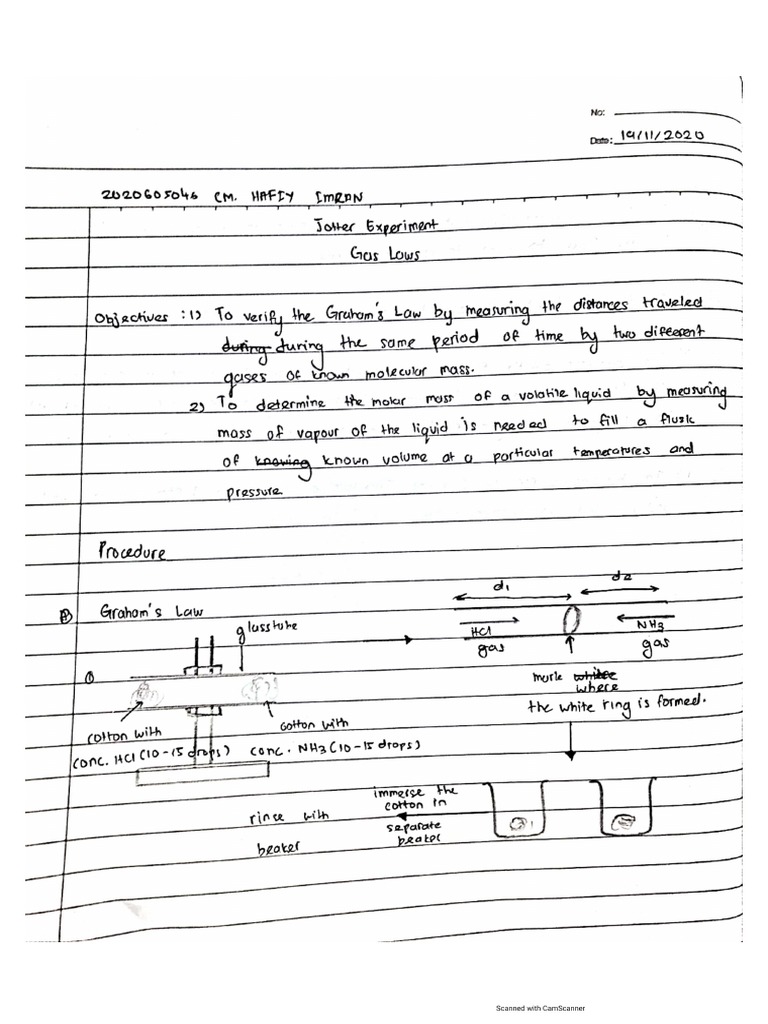 No:
Date: 19/11/2020
2020605046 CM. HAFIY IMRAN
Jotter Experiment
Gas Laws
Objectives : 1) To verify the Graham's Law by measuring the distances traveled
during during the same period of time by two different
gases of known molecular mass.
2) To determine the molar mass of a volatile liquid by measuring
mass of vapour of the liquid is needed to fill a flask
of knowing known volume at a particular temperatures and
pressure.
Procedure
A) Graham's Law
d1
d2
glass tube
HCl
gas
NH3
gas
①
mark white where
the white ring is formed.
cotton with
conc. HCl (10-15 drops)
cotton with
conc. NH3 (10-15 drops)
immerse the
cotton in
separate
beaker
rinse with
beaker
Scanned with CamScanner